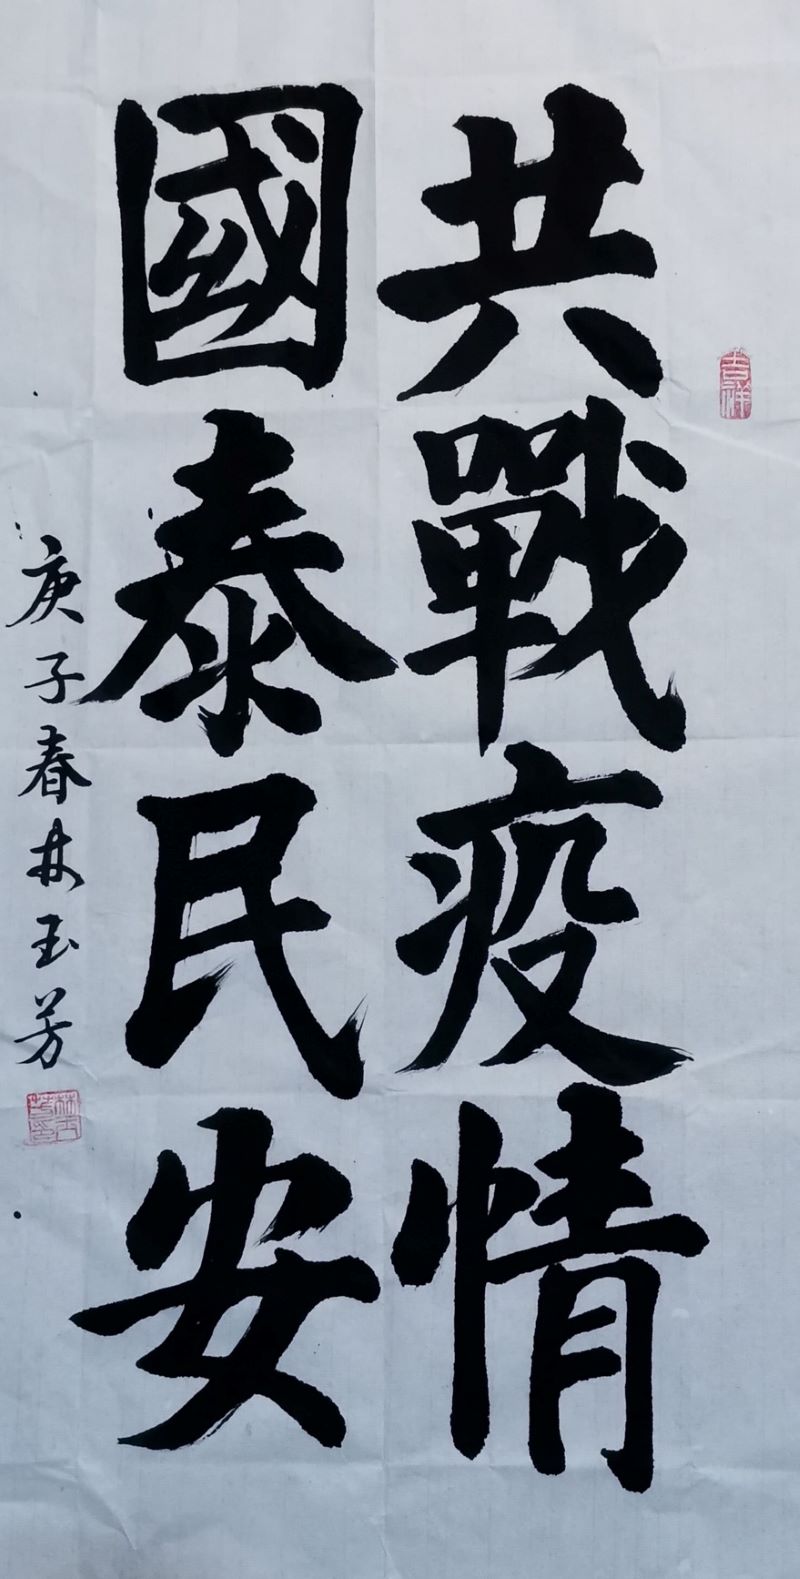 共戰疫情
國泰民安
庚子春林玉芳
吉祥
林玉芳印